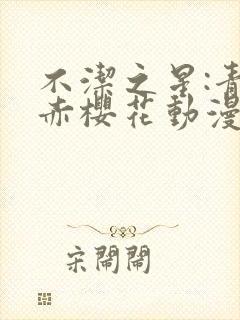 不潔之星:青
赤櫻花動漫
宋鬧鬧